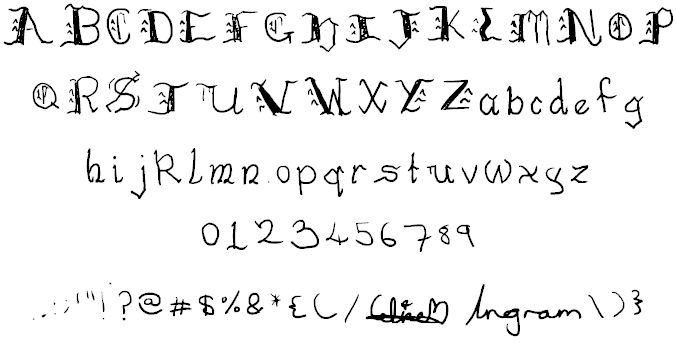 A B C D E F G H I J K L M N O P
Q R S T U V W X Y Z a b c d e f g
h i j k l m n o p q r s t u v w x y z
0 1 2 3 4 5 6 7 8 9
. , : ; ' " ! ? @ # $ % & * { ( / Ingram \ ) }